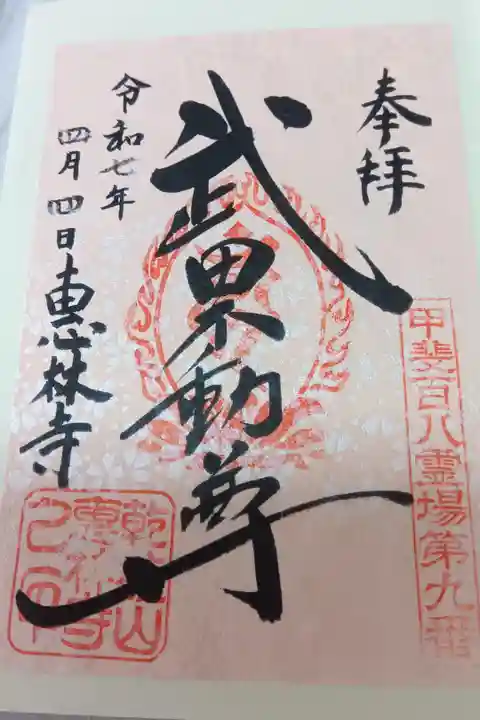 奉拝
甲斐百八霊場第九番
武田不動尊
令和七年
四月四日
恵林寺
乾徳山
恵林寺
之印